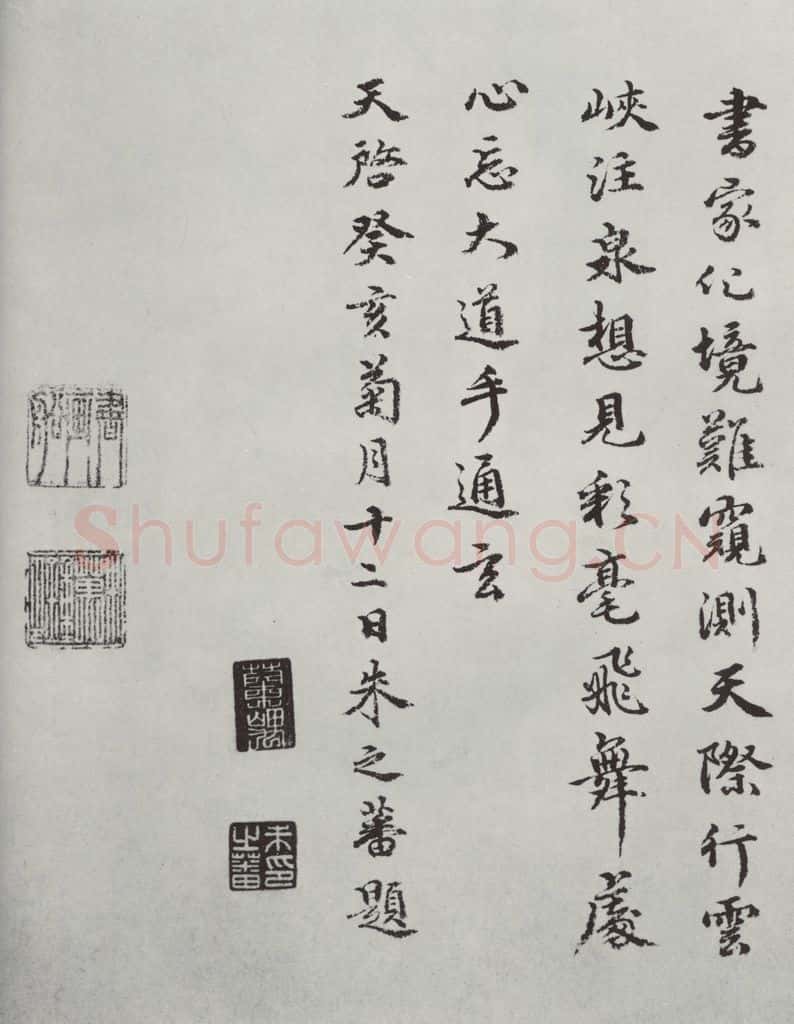 書家化境難窺測天際行雲
峽注泉想見彩毫飛舞處
心忘大道手通玄
天啓癸亥菊月十二日朱之蕃題
朱印之蕃
Shufawang.CN